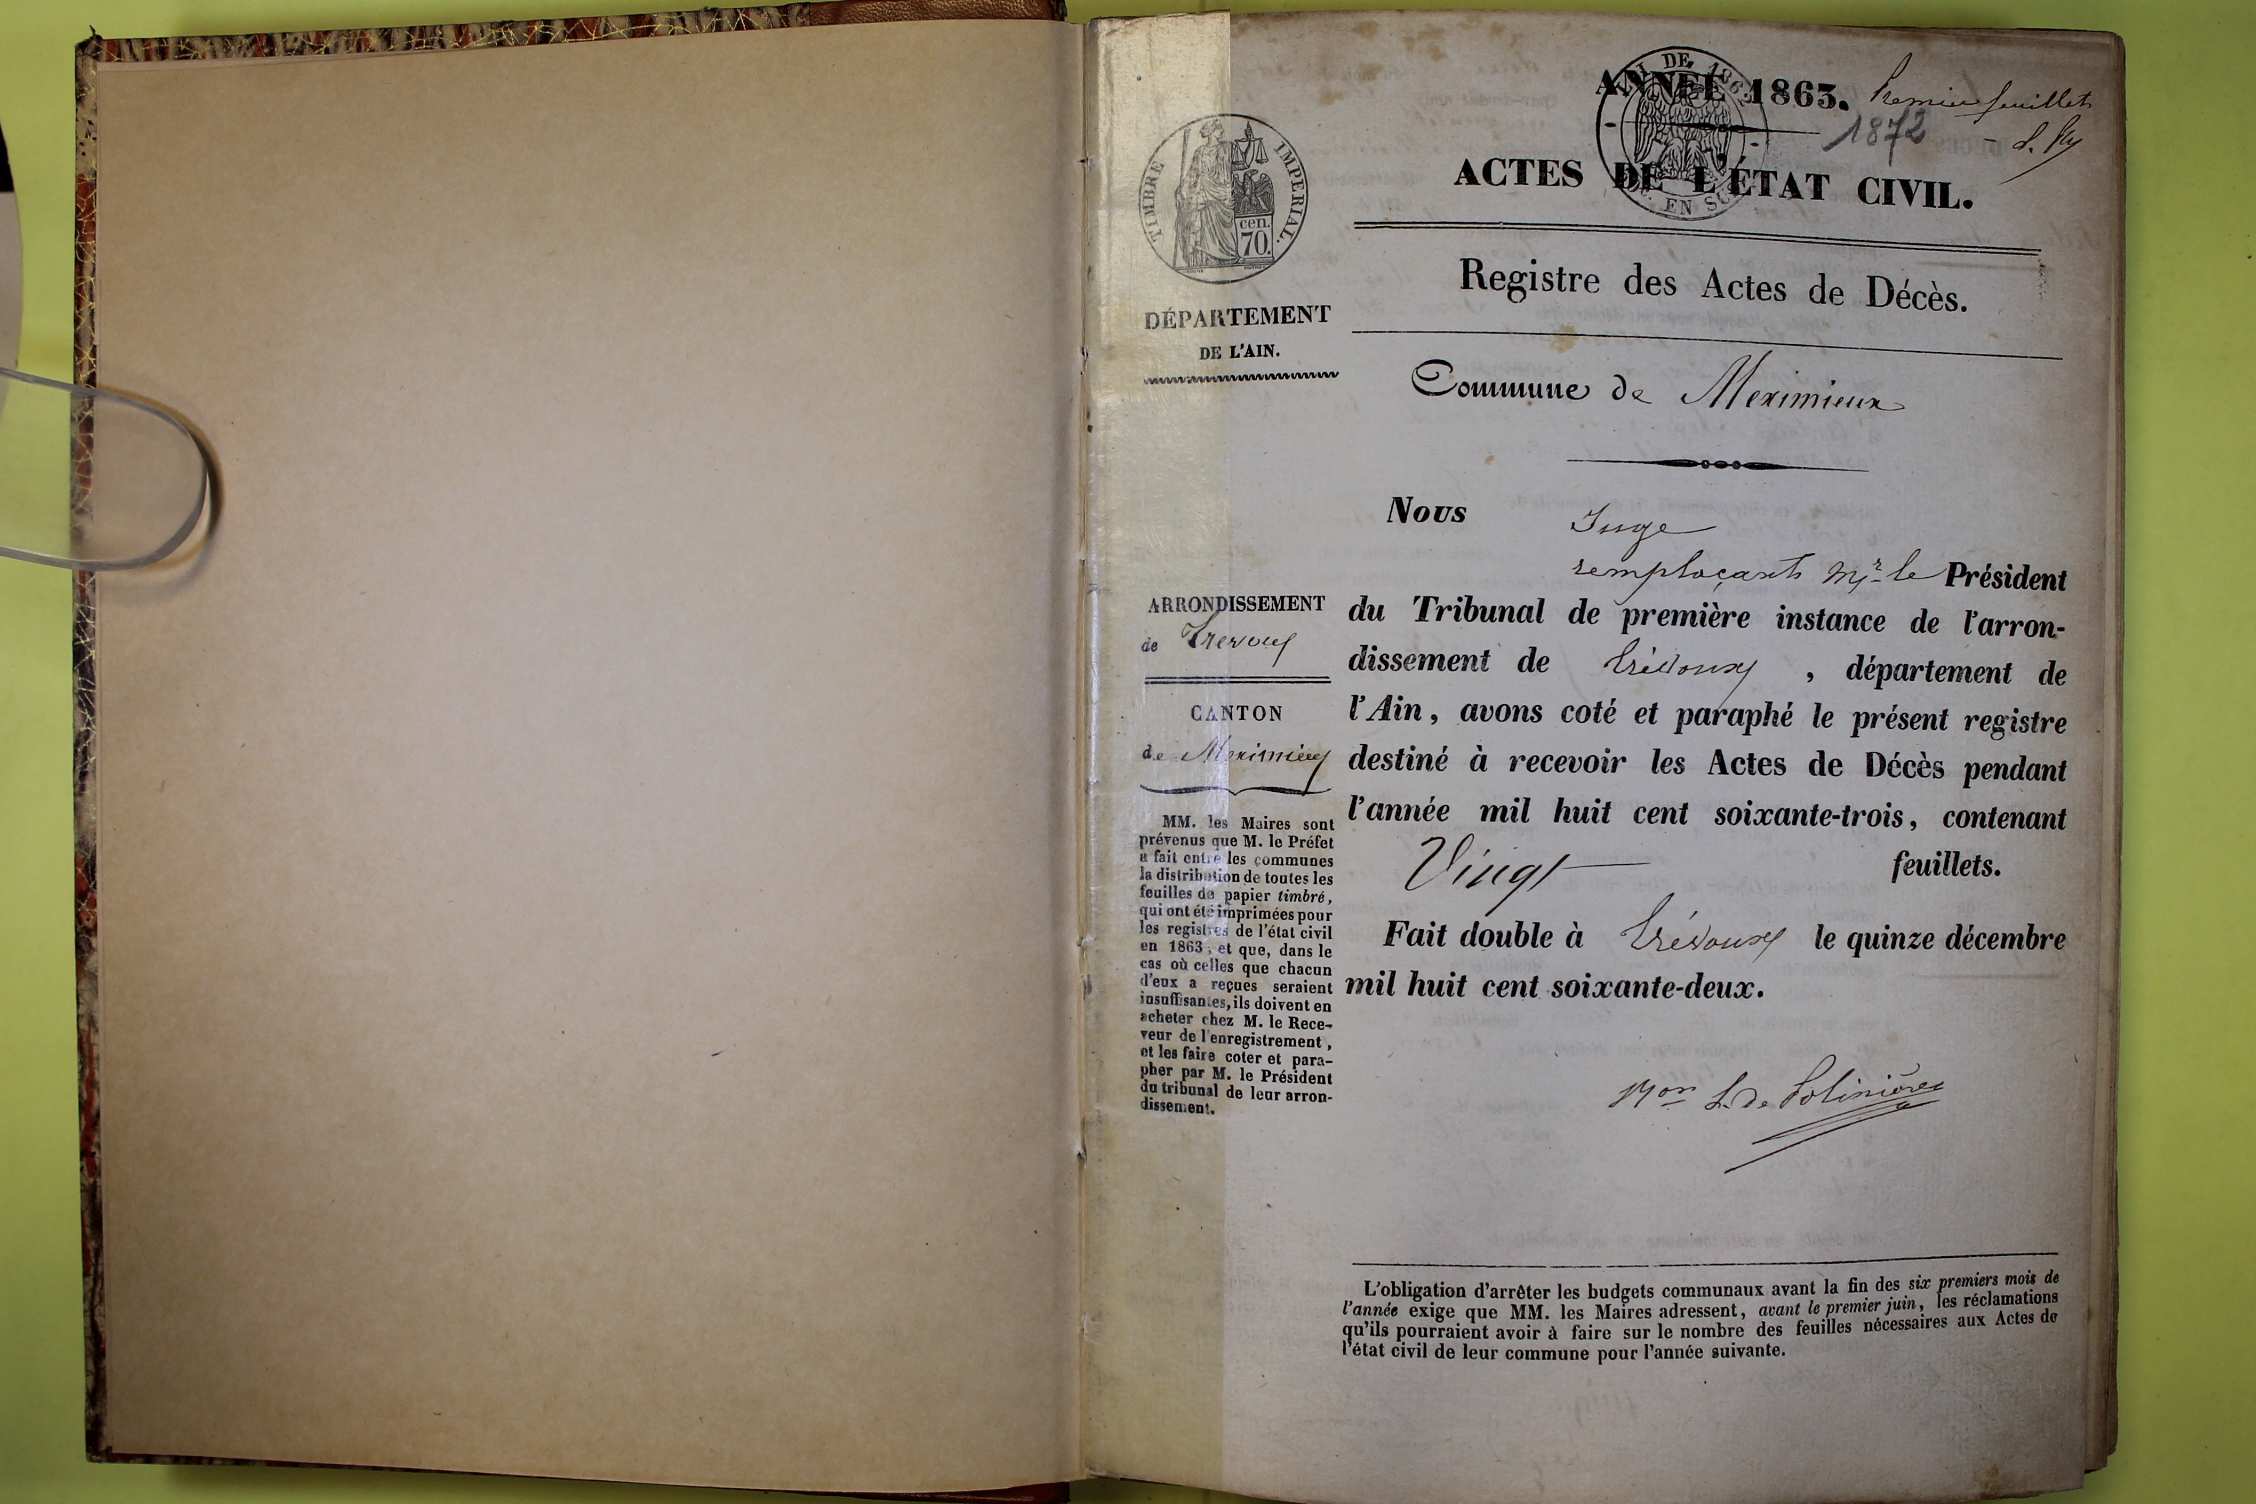 ANNÉE 1863. Premier feuillet
1872
ACTES DE L'ÉTAT CIVIL.
LOI DE 1862
EN SUS
TIMBRE IMPERIAL.
cen.
70.
Registre des Actes de Décès.
DÉPARTEMENT
DE L'AIN.
Commune de Meximieux
Nous Juge
remplaçant Mr. le Président
du Tribunal de première instance de l'arron-
dissement de Trévoux, département de
l'Ain, avons coté et paraphé le présent registre
destiné à recevoir les Actes de Décès pendant
l'année mil huit cent soixante-trois, contenant
Vingt feuillets.
Fait double à Trévoux le quinze décembre
mil huit cent soixante-deux.
de Polinière
ARRONDISSEMENT
de Trevoux
CANTON
de Meximieux
MM. les Maires sont
prévenus que M. le Préfet
a fait entre les communes
la distribution de toutes les
feuilles de papier timbré,
qui ont été imprimées pour
les registres de l'état civil
en 1863, et que, dans le
cas où celles que chacun
d'eux a reçues seraient
insuffisantes, ils doivent en
acheter chez M. le Rece-
veur de l'enregistrement,
et les faire coter et para-
pher par M. le Président
du tribunal de leur arron-
dissement.
L'obligation d'arrêter les budgets communaux avant la fin des six premiers mois de
l'année exige que MM. les Maires adressent, avant le premier juin, les réclamations
qu'ils pourraient avoir à faire sur le nombre des feuilles nécessaires aux Actes de
l'état civil de leur commune pour l'année suivante.